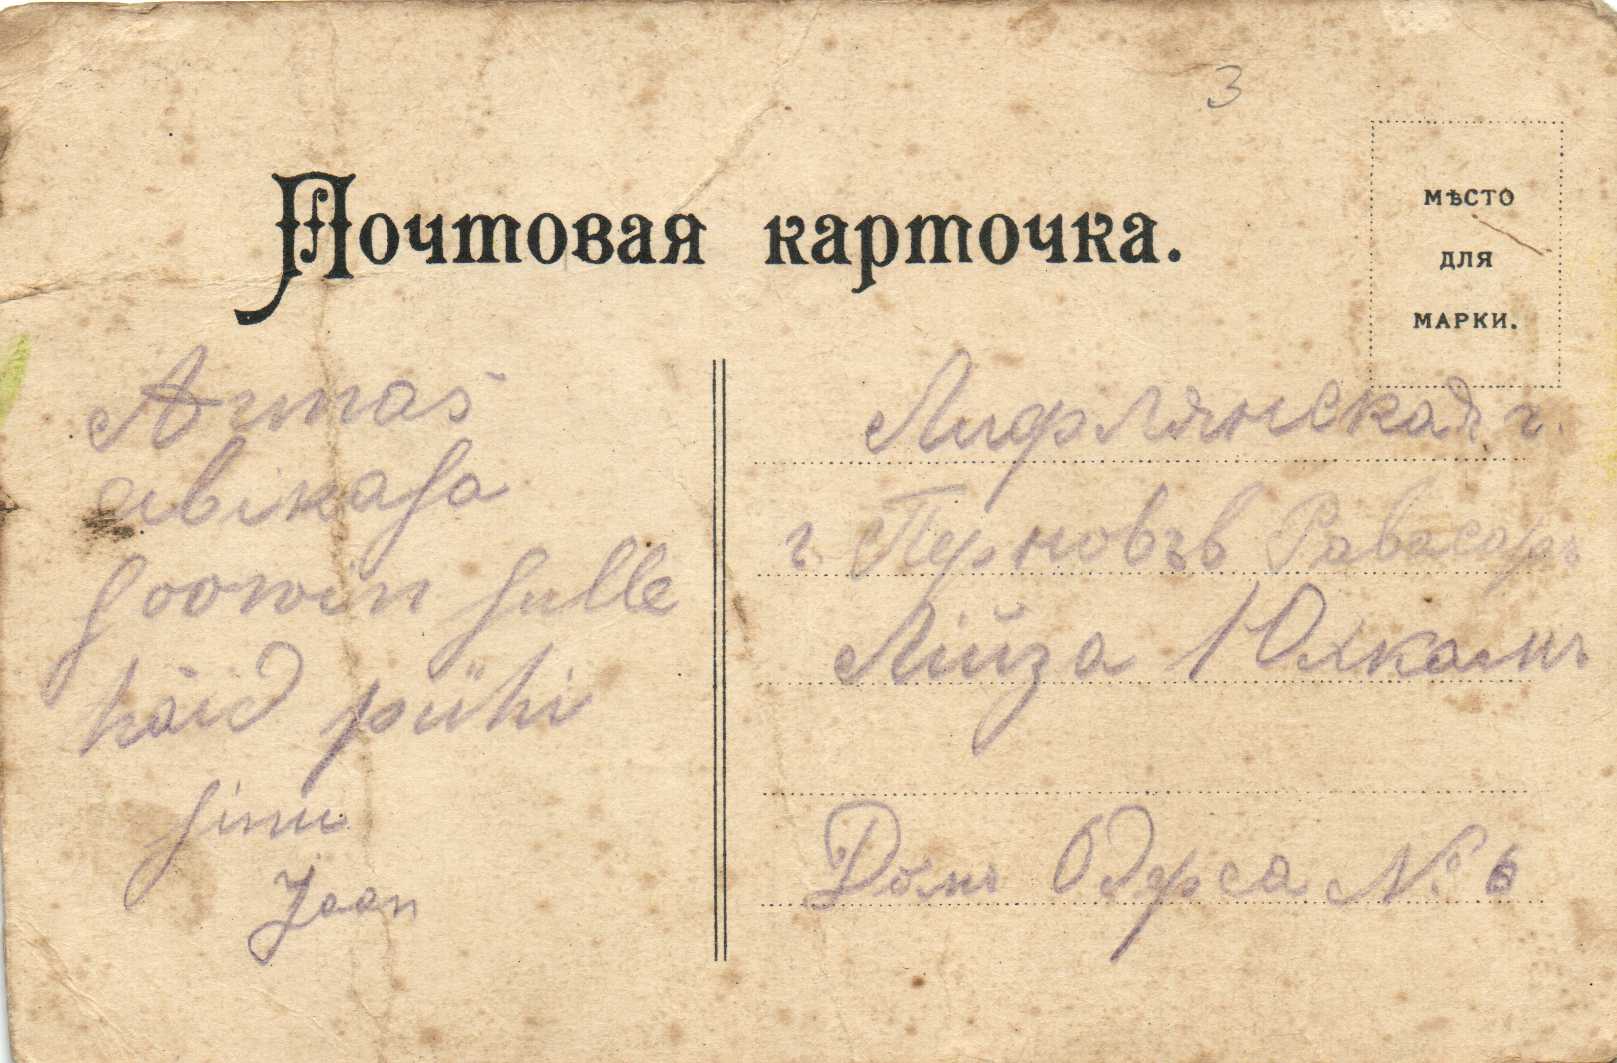 3
Почтовая карточка.
МѢСТО
ДЛЯ
МАРКИ.
Armas
abikasa
soowin sulle
häid pühi
sinu
Jaan
Лифлянская г.
г. Перновъв
Лійза Юлкамъ
Домъ Одерса № 6